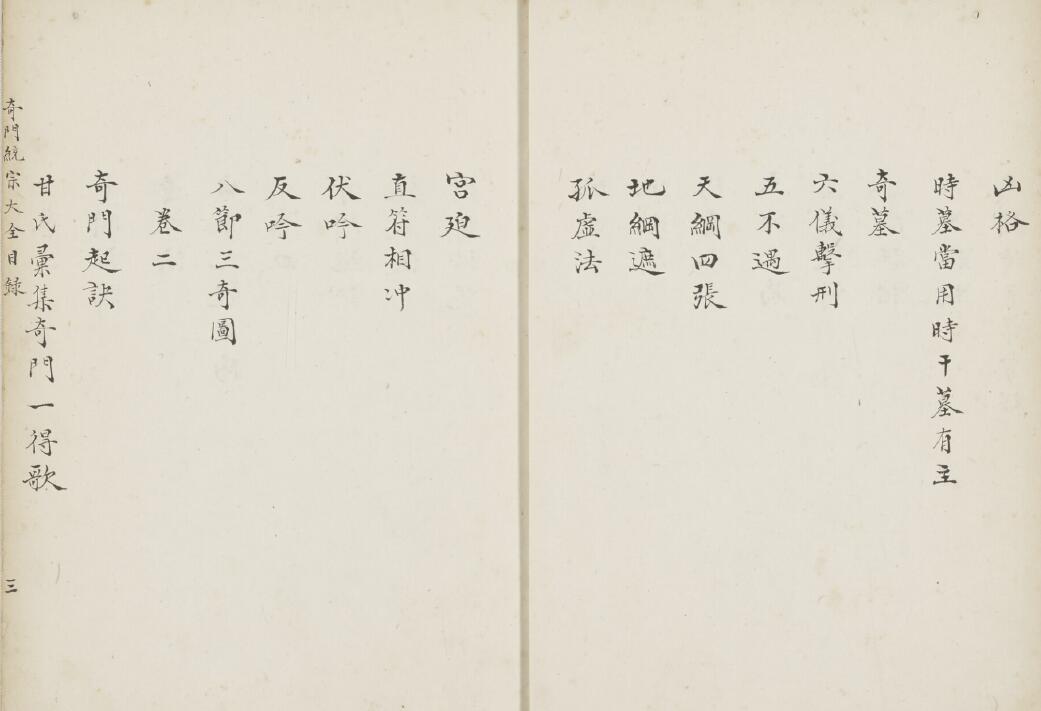 凶格
時墓當用時干墓有主
奇墓
六儀擊刑
五不遇
天綱四張
地綱遮
孤虛法
宮廹
直符相冲
伏吟
反吟
八節三奇圖
卷二
奇門起訣
甘氏彚集奇門一得歌
奇門統宗大全目錄
三